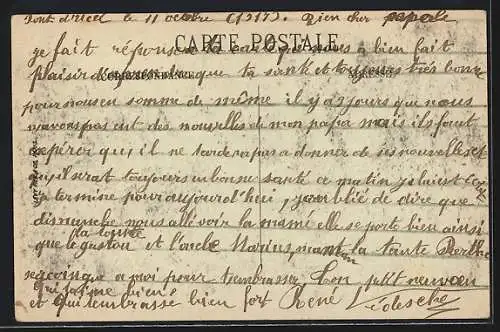 Pont d'Ucel le 11 octobre (1917). Bien cher
CARTE POSTALE
je fait réponse a ta carte qui nous a bien fait
plaisir d'apprendre que ta santé et toujours très bonne
CORRESPONDANCE
ADRESSE
pour nous en somme de même il y a 5 jours que nous
n'avons pas eut des nouvelles de mon papa mais ils faut
espérer qu'il ne tardera pas a donner de ses nouvelles et
qu'il serat toujours en bonne santé ce matin je lui est
je termine pour aujourd'hui, j'oublié de dire que
dimanche nous allé voir la mamé elle se porte bien ainsi
que la tante le gaston et l'oncle Marius, maman la tante Berthe
se joingue a moi pour t'embrasser. Ton petit neuveu
qui t'aime bien
et qui t'embrasse bien fort René